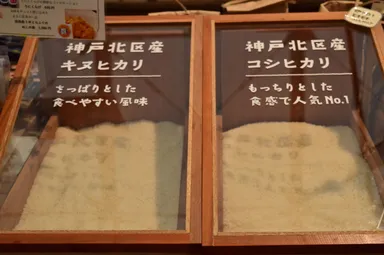 神戸北区産
キヌヒカリ
さっぱりとした
食べやすい風味
神戸北区産
コシヒカリ
もっちりとした
食感で人気No.1